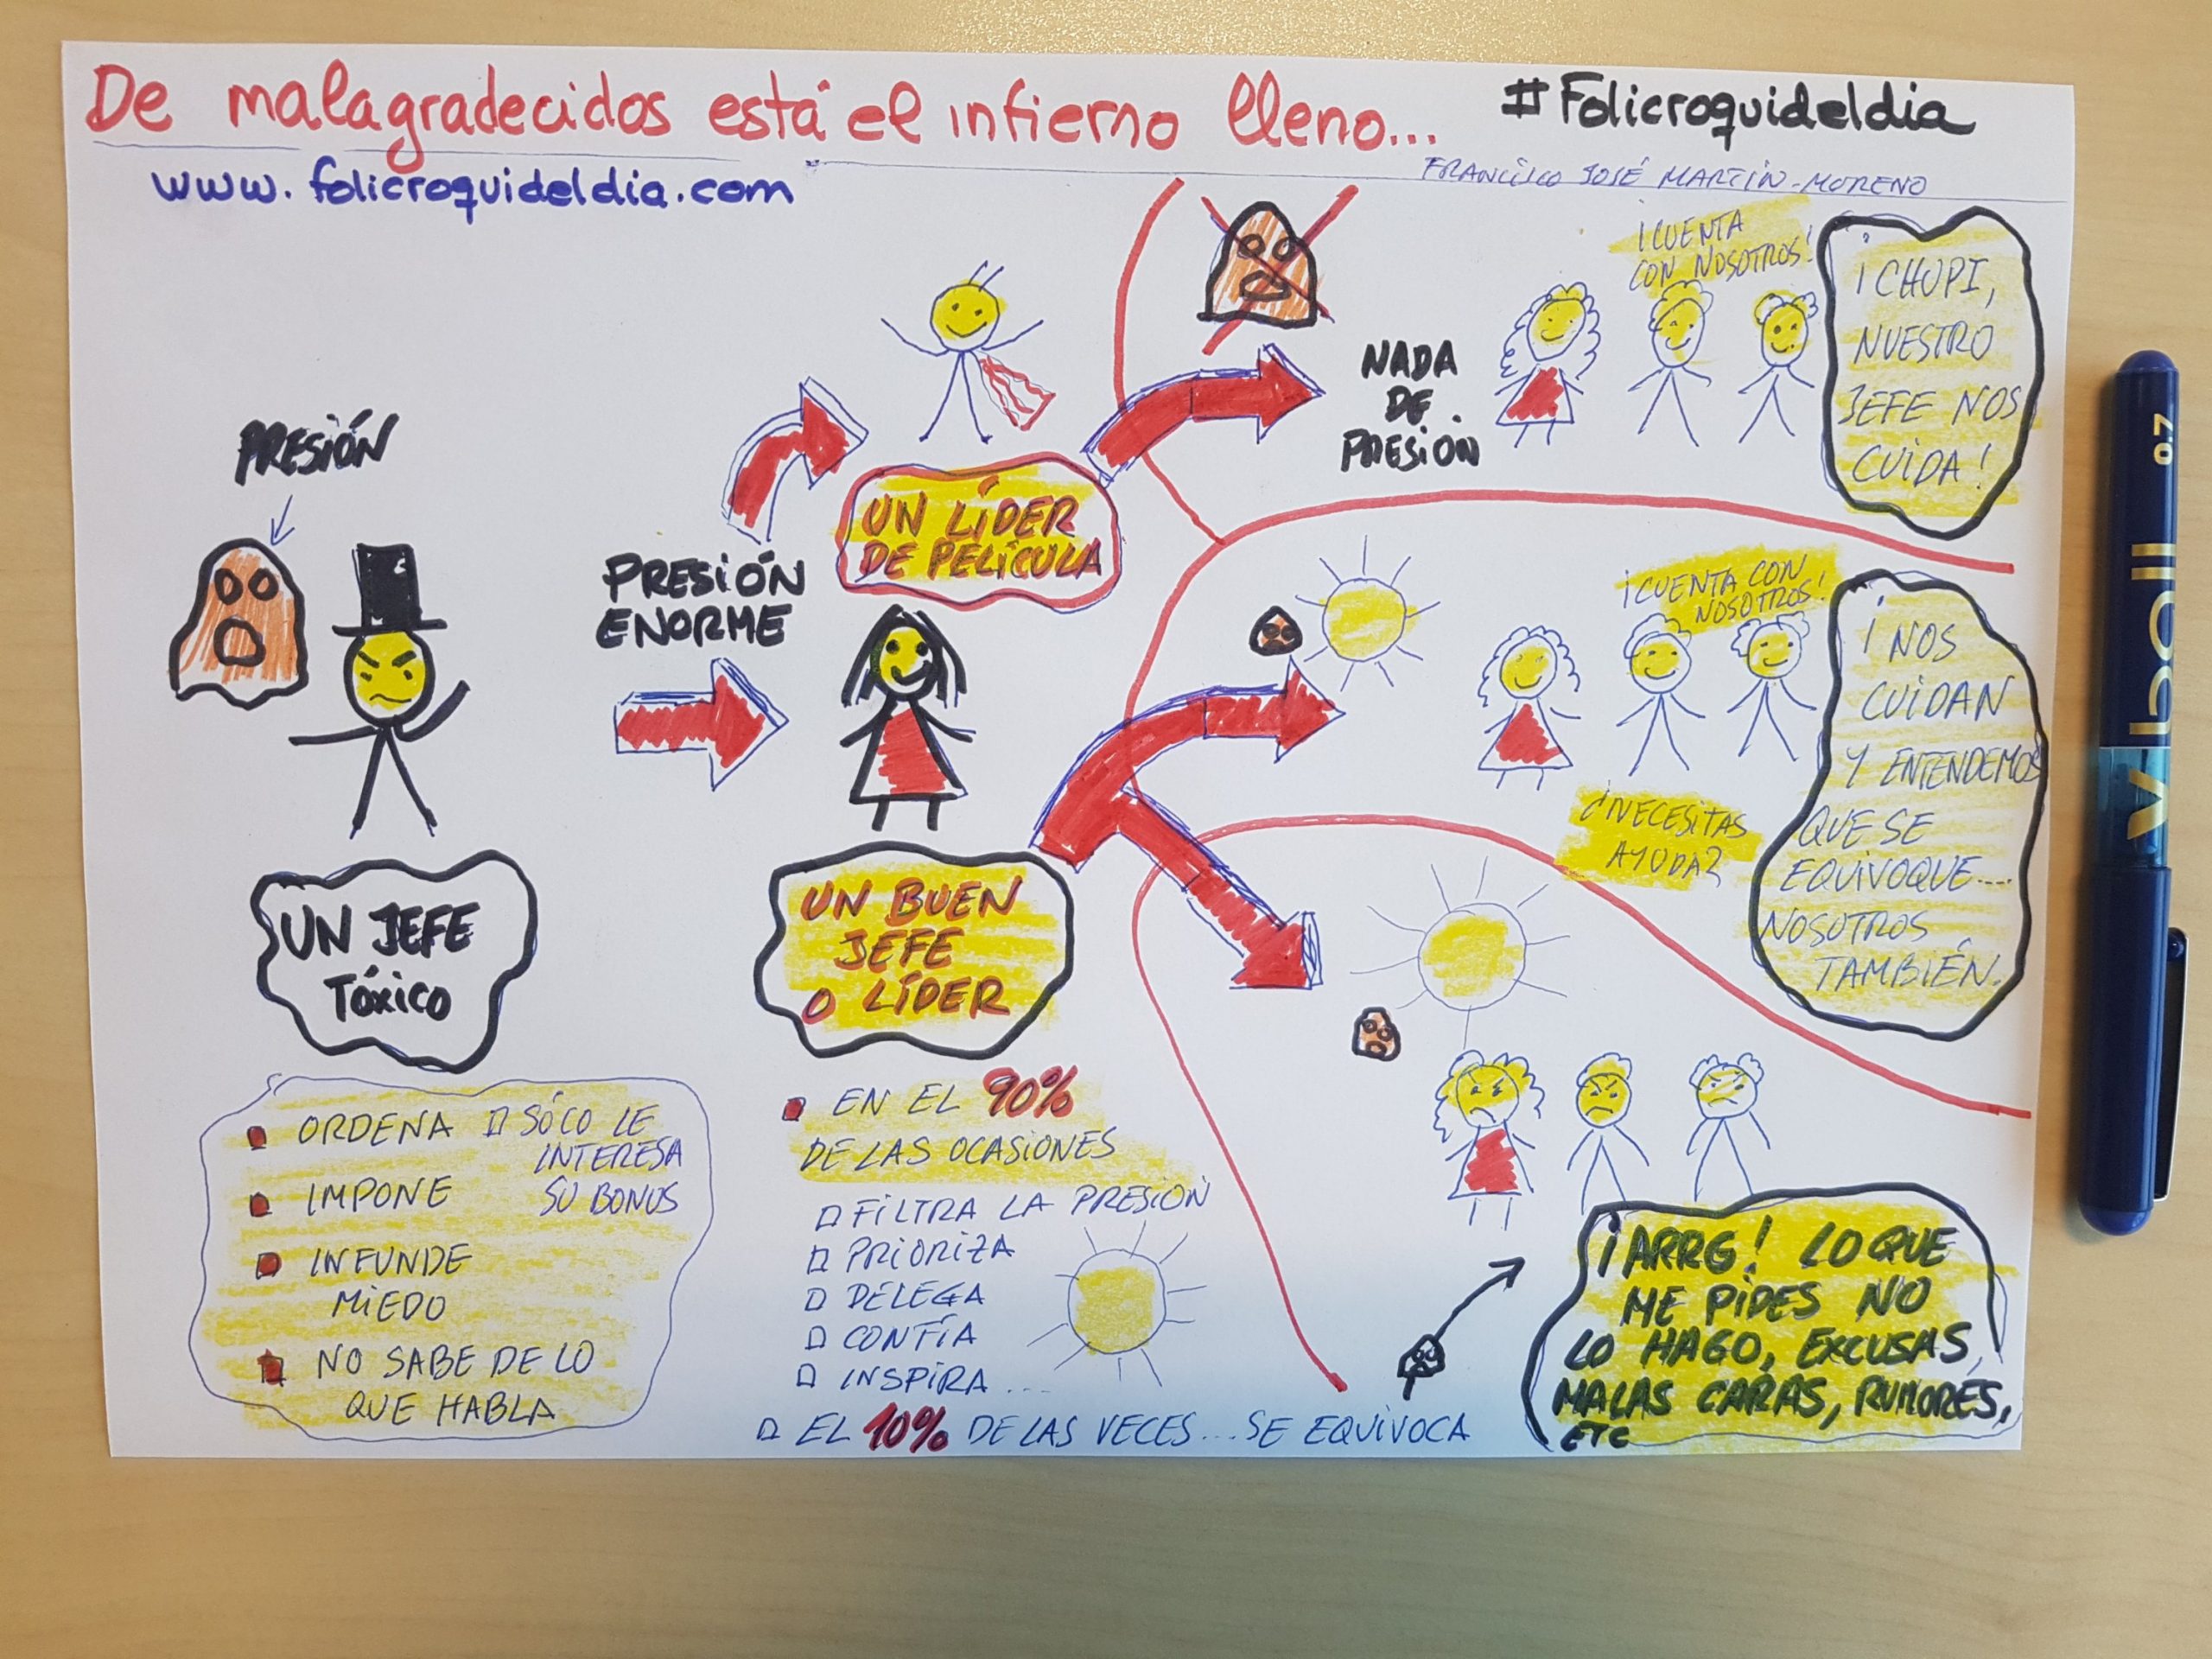 De malagradecidos está el infierno lleno...
#Folicroquideldia
www.folicroquideldia.com
FRANCISCO JOSÉ MARTÍN-MORENO
PRESIÓN
UN JEFE
TÓXICO
ORDENA
IMPONE
INFUNDE
MIEDO
NO SABE DE LO
QUE HABLA
SÓLO LE
INTERESA
SU BONUS
PRESIÓN
ENORME
UN LÍDER
DE PELÍCULA
UN BUEN
JEFE
O LÍDER
EN EL 90%
DE LAS OCASIONES
FILTRA LA PRESIÓN
PRIORIZA
DELEGA
CONFÍA
INSPIRA...
EL 10% DE LAS VECES... SE EQUIVOCA
NADA
DE
PRESIÓN
¡CUENTA
CON NOSOTROS!
¡CHUPI,
NUESTRO
JEFE NOS
CUIDA!
¡CUENTA CON
NOSOTROS!
¿NECESITAS
AYUDA?
¡NOS
CUIDAN
Y ENTENDEMOS
QUE SE
EQUIVOQUE....
NOSOTROS
TAMBIÉN.
¡ARRG! LO QUE
ME PIDES NO
LO HAGO, EXCUSAS,
MALAS CARAS, RUMORES,
ETC
V ball 07